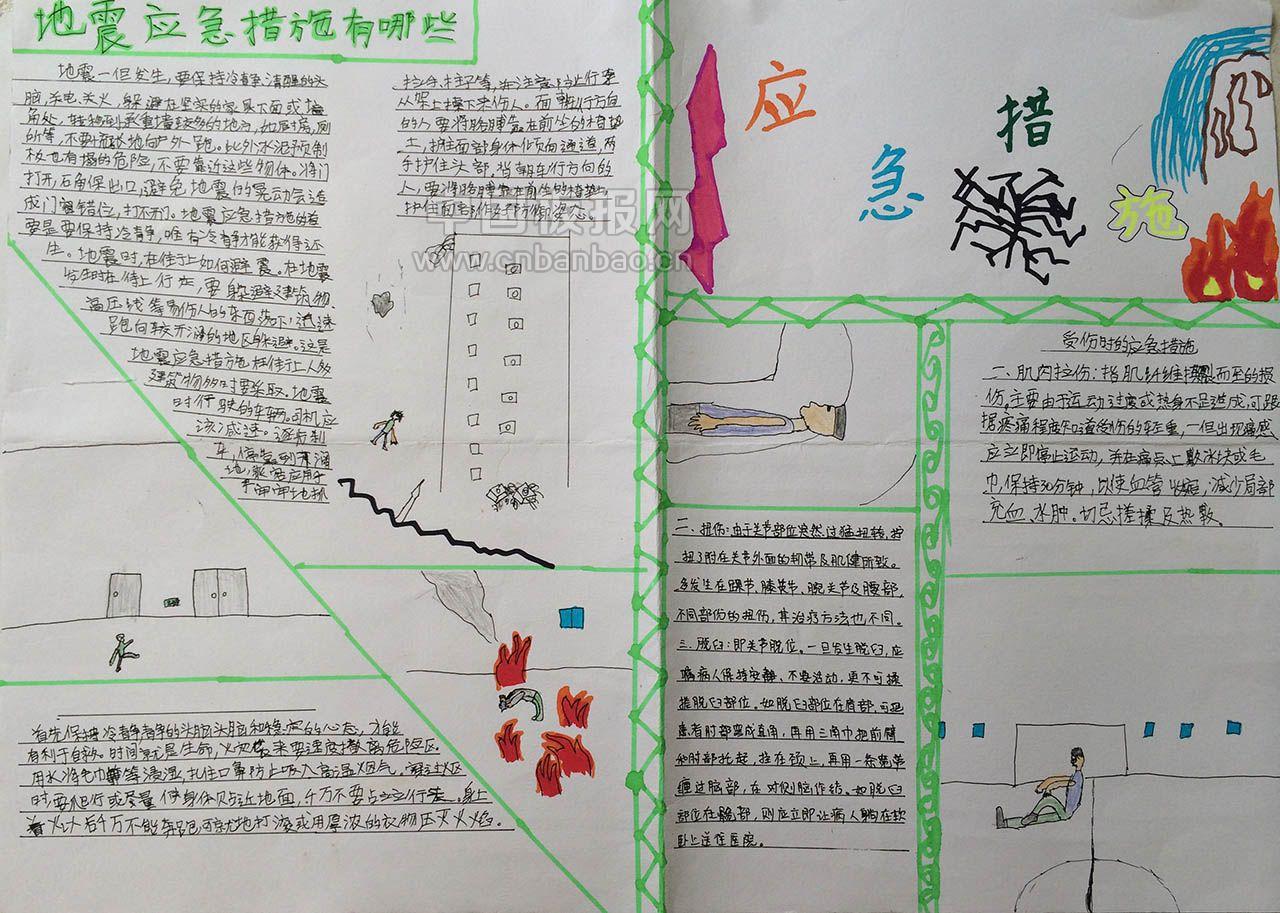 地震应急措施有哪些
地震一但发生,要保持冷静、清醒的头
脑,杀电、关火,躲避在坚实的家具下面或墙
角处,转移到承重墙较多的地方,如厨房,厕
所等,不要盲目地向户外跑。比外水泥预制
板也有塌的危险,不要靠近这些物体。将门
打开,石角保出口,避免地震的晃动会造
成门窗错位,打不开。地震应急措施的首
要是要保持冷静,唯有冷静才能获得还
生。地震时,在街上如何避震。在地震
发生时在街上行走,要躲避建筑物、
高压线等易伤人的东西落下,迅速
跑向较开阔的地区躲避。这是
地震应急措施在街上人多
建筑物多时要采取。地震
时行驶的车辆。司机应
该减速。逐后刹
车,
地,乘客应用手
牢牢地抓
拉手、柱子等,并注意防止行李
从架上掉下来伤人。面朝行方向
的人要将胳膊靠在前坐的椅垫
上,护住面部身体倾向通道,两
手护住头部,背朝车行方向的
人,要将胳膊靠在前坐的椅垫上
护住面部作好防御姿态。
应
急
措
施
中国板报网
www.cnbanbao.cn
受伤时的应急措施
一、肌肉拉伤:指肌纤维撕裂而至的损
伤,主要由于运动过度或热身不足造成,可跟
据疼痛程度知道受伤的轻重,一但出现痛感
应立即停止运动,并在痛点上敷冰块或毛
巾,保持30分钟,以使血管收缩,减少局部
充血、水肿。切忌搓揉及热敷。
二、扭伤:由于关节部位突然过猛扭转,拧
扭了附在关节外面的韧带及肌健所致。
多发生在踝节、膝关节、腕关节及腰部,
不同部伤的扭伤,其治疗方法也不同。
三、脱臼:即关节脱位。一旦发生脱臼,应
嘱病人保持安静、不要活动,更不可揉
搓脱臼部位。如脱臼部位在肩部,可把
患者肘部弯成直角,再用三角巾把前臂
和肘部托起,挂在颈上,再用一条绷带
缠过脑部,在对侧脑作结。如脱臼
部位在髋部,则应立即让病人躺在软
卧上送往医院。
首先保持冷静静的头脑头脑和稳定的心态,才能
有利于自救。时间就是生命,火灾袭来要速度撤离危险区。
用水将毛巾等浸湿,扎住口鼻防止吸入高温烟气,通过烟区
时,要爬行或尽量使身体贴近地面,千万不要站立行走。身上
着火以后千万不能奔跑,可就地打滚或用厚浓的衣物压灭火焰。